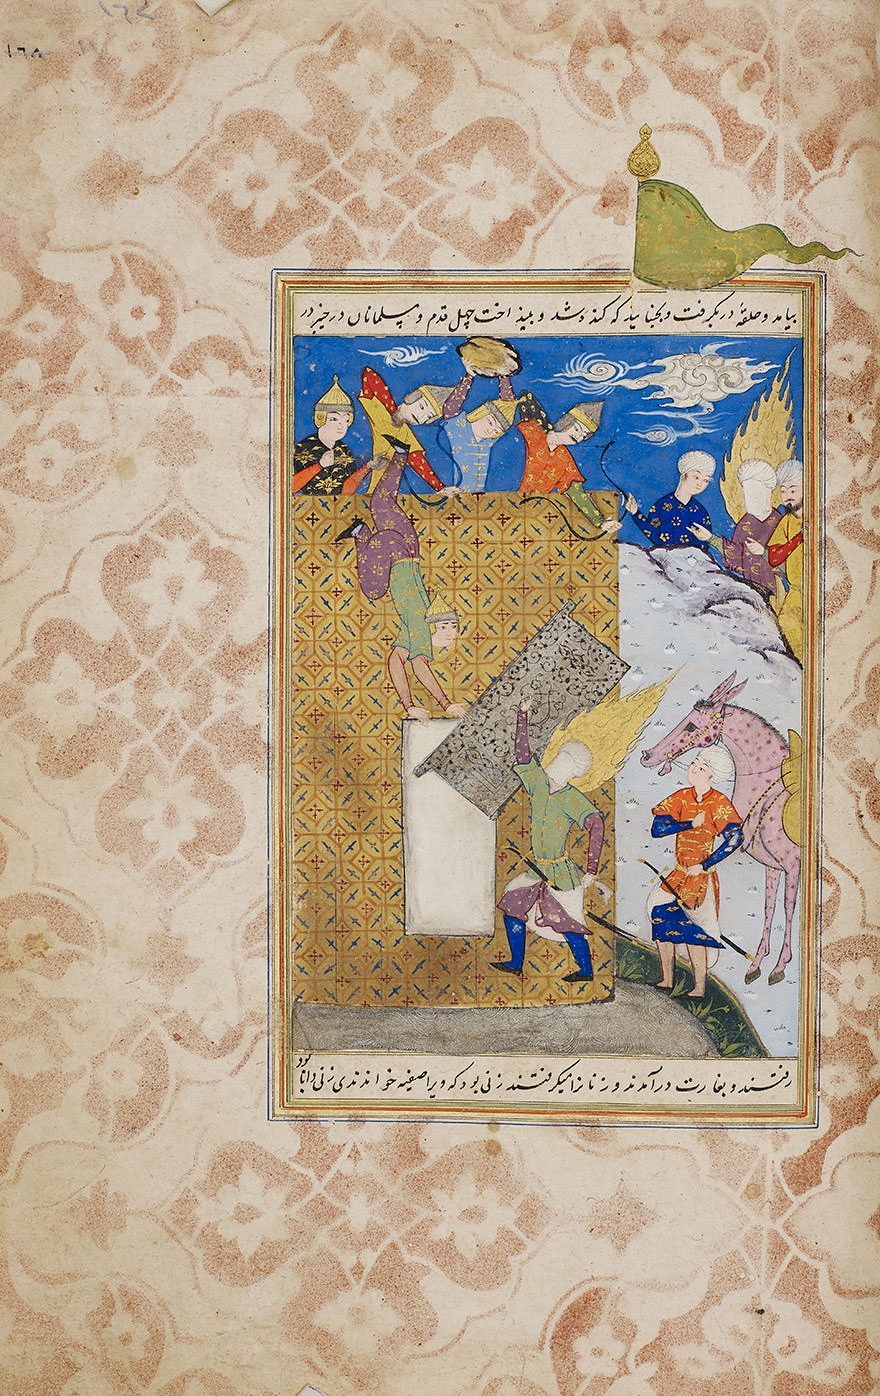 ١٦٨
بیامد و حلقهٔ در بگرفت و بجنبانید که کنده شد و بینداخت چهل قدم و مسلمانان در خیبر در
رفتند و بغارت درآمدند و زنانرا میگرفتند زنی بود که ویرا صفیه خواندندی زنی دانا بود